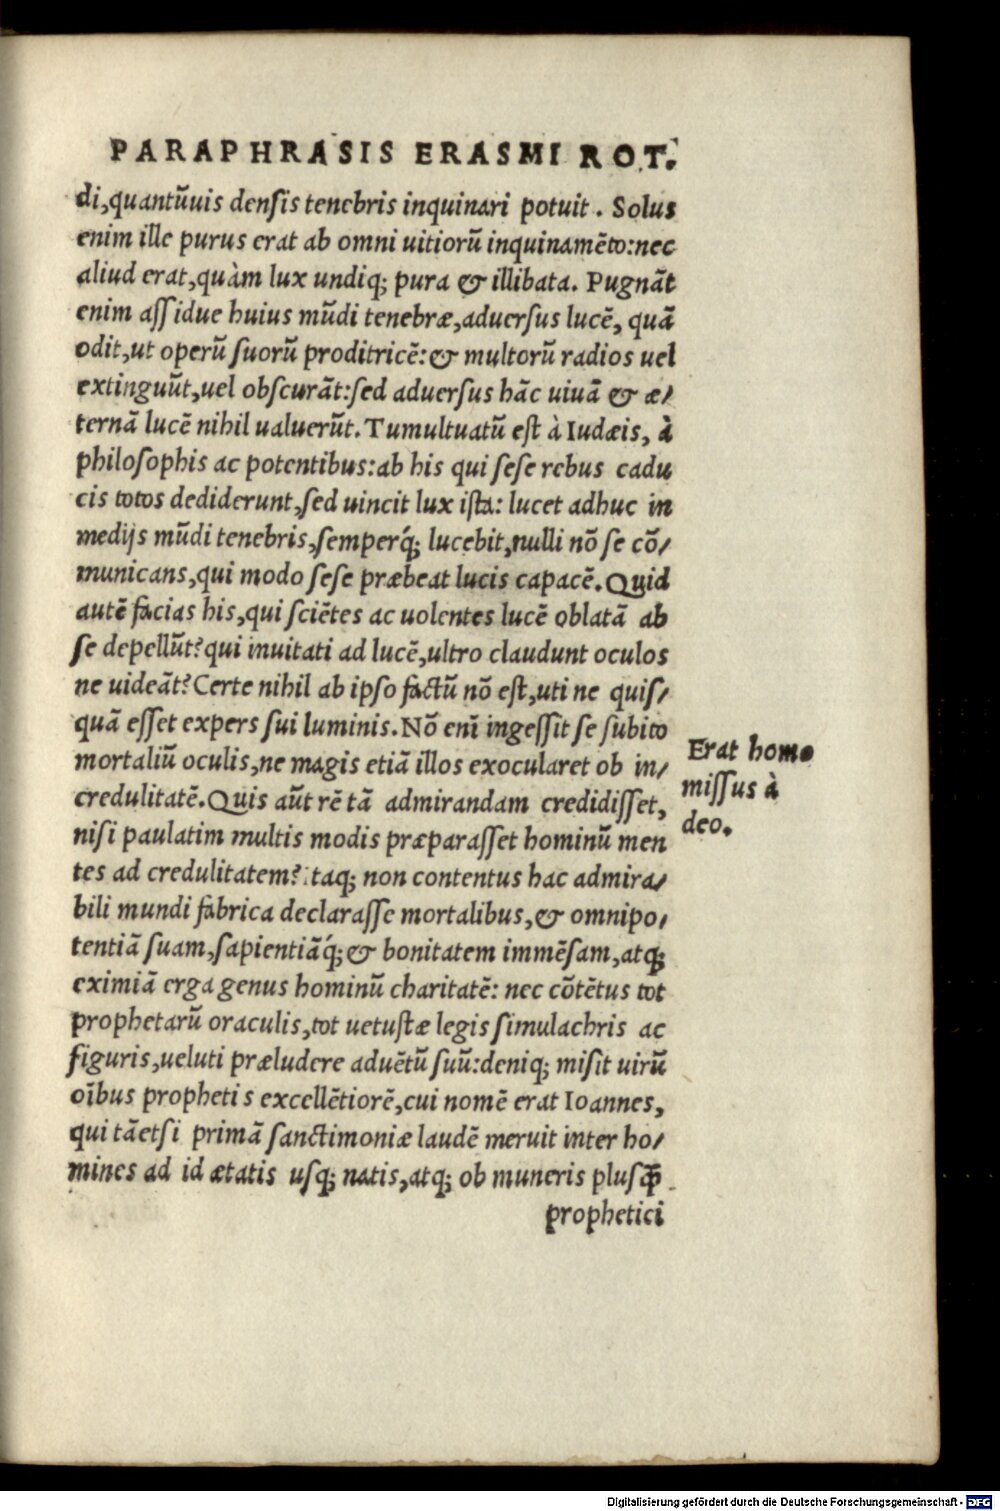 PARAPHRASIS ERASMI ROT.
di,quantũuis densis tenebris inquinari potuit . Solus
enim ille purus erat ab omni uitiorũ inquinamẽto:nec
aliud erat,quàm lux undiq; pura & illibata. Pugnãt
enim assidue huius mũdi tenebræ,aduersus lucẽ, quã
odit,ut operũ suorũ proditricẽ:& multorũ radios uel
extinguũt,uel obscurãt:sed aduersus hãc uiuã & æ/
ternã lucẽ nihil ualuerũt.Tumultuatũ est à Iudæis, à
philosophis ac potentibus:ab his qui sese rebus cadu
cis totos dediderunt,sed uincit lux ista: lucet adhuc in
medijs mũdi tenebris,semperq́; lucebit,nulli nõ se cõ/
municans,qui modo sese præbeat lucis capacẽ.Quid
autẽ facias his,qui sciẽtes ac uolentes lucẽ oblatã ab
se depellũt?qui inuitati ad lucẽ,ultro claudunt oculos
ne uideãt?Certe nihil ab ipso factũ nõ est,uti ne quis/
quã esset expers sui luminis.Nõ enĩ ingessit se subito
mortaliũ oculis,ne magis etiã illos exocularet ob in/
credulitatẽ.Quis aũt rẽ tã admirandam credidisset,
nisi paulatim multis modis præparasset hominũ men
tes ad credulitatem? Itaq; non contentus hac admira/
bili mundi fabrica declarasse mortalibus,& omnipo/
tentiã suam,sapientiãq́;& bonitatem immẽsam,atq;
eximiã erga genus hominũ charitatẽ: nec cõtẽtus tot
prophetarũ oraculis,tot uetustæ legis simulachris ac
figuris,ueluti præludere aduẽtũ suũ:deniq; misit uirũ
oĩbus prophetis excellẽtiorẽ,cui nomẽ erat Ioannes,
qui tãetsi primã sanctimoniæ laudẽ meruit inter ho/
mines ad id ætatis usq; natis,atq; ob muneris plusq̃
prophetici
Erat homo
missus à
deo.
Digitalisierung gefördert durch die Deutsche Forschungsgemeinschaft - DFG